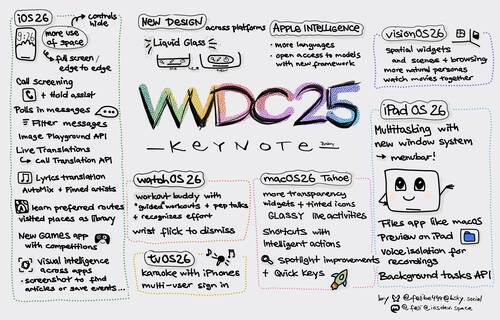 iOS 26
controls hide
9:26
more use of space
full screen / edge to edge
Call screening
+ Hold assist
Polls in messages
Filter messages
Image Playground API
Live Translations
Call Translation API
Lyrics translation
AutoMix + Pinned artists
learn preferred routes
visited places as library
New Games app
with competitions
visual intelligence
across apps
• screenshot to find
articles or save events...
NEW DESIGN across platforms
Liquid Glass
APPLE INTELLIGENCE
• more languages
• open access to models
with new framework
WWDC25
- KEYNOTE -
watchOS 26
workout buddy with
"guided workouts + pep talks
+ recognizes effort
wrist flick to dismiss
tvOS 26
karaoke with iPhones
multi-user sign in
macOS 26 Tahoe
more transparency
widgets + tinted icons
GLASSY live activities
Shortcuts with
Intelligent actions
spotlight improvements
+ Quick Keys
visionOS 26
spatial widgets
and scenes + browsing
more natural personas
watch movies together
iPadOS 26
Multitasking with
new window system
→ menubar!
Files app like macOS
Preview on iPad
Voice isolation for
recordings
Background tasks API
by